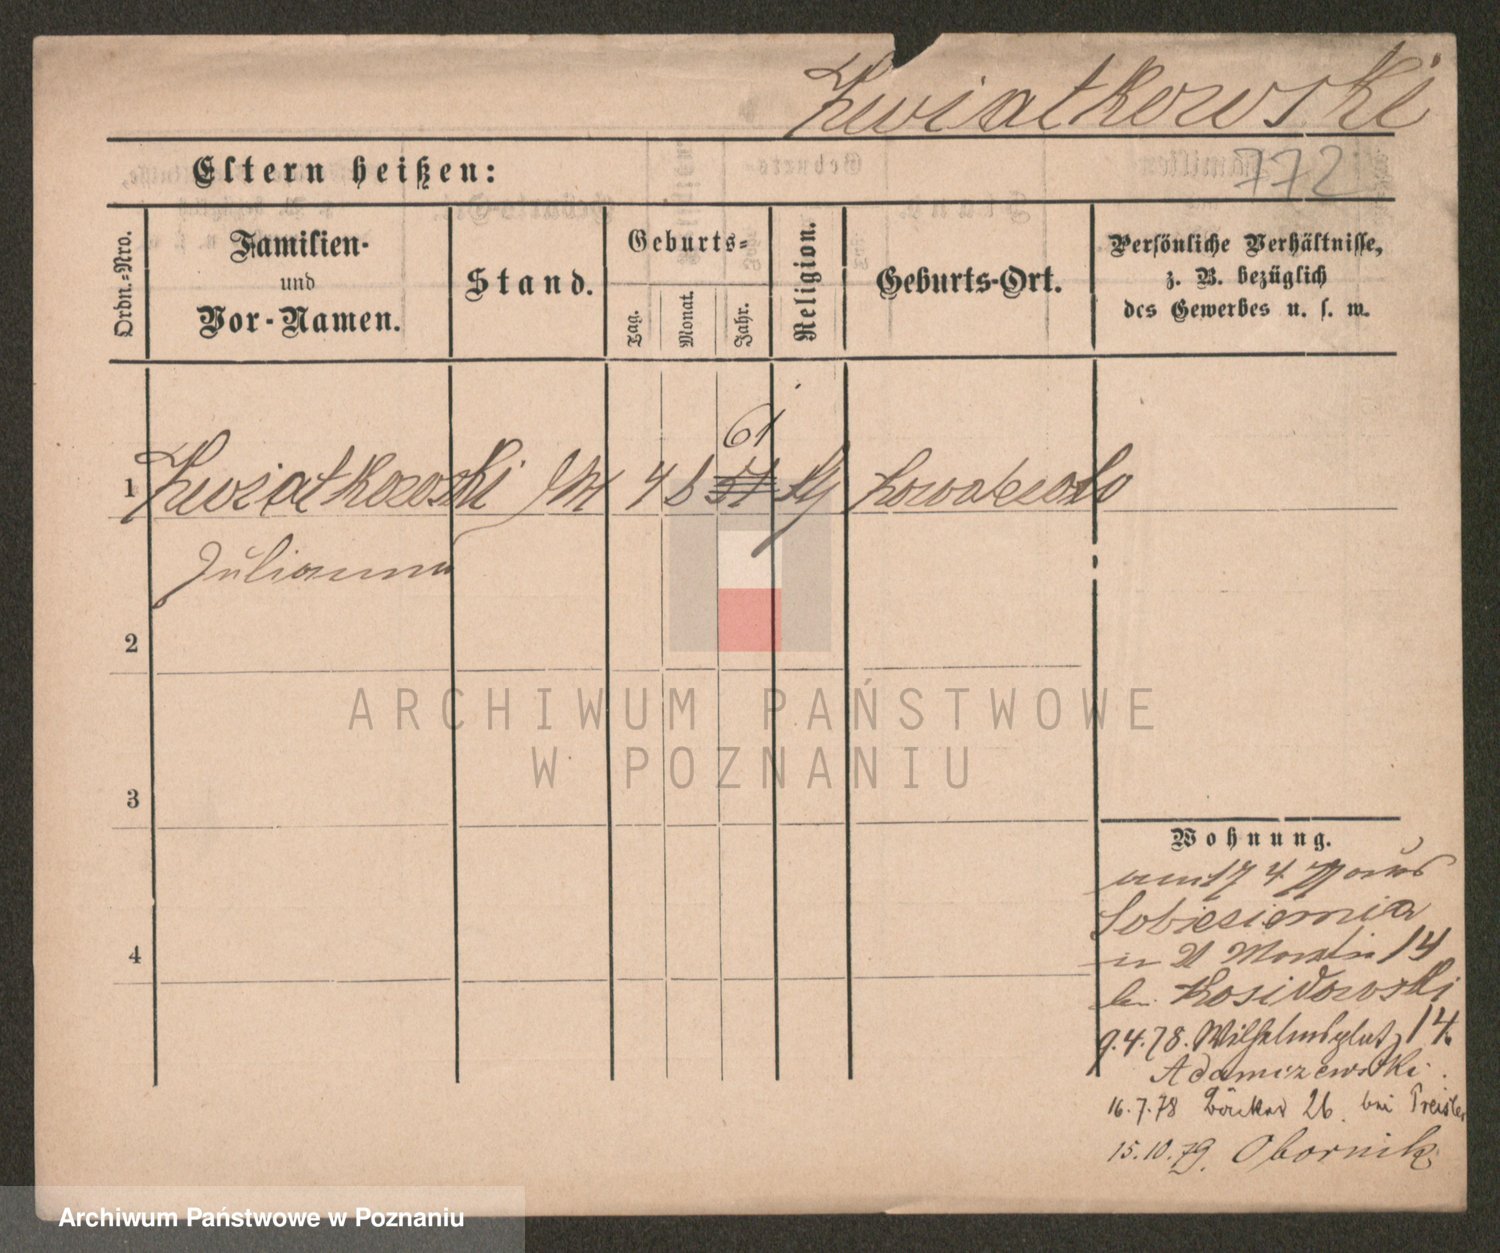 Kwiatkowski
772
Eltern heißen:
Ordn.-Nro.
Familien-
und
Vor-Namen.
Stand.
Geburts-
Tag.
Monat.
Jahr.
Religion.
Geburts-Ort.
Persönliche Verhältnisse,
z. B. bezüglich
des Gewerbes u. s. w.
61
1 Kwiatkowski 4 8 51
Julianna
2
3
4
Wohnung.
am 17 4 77 aus
Sobiesiernia
in St Martin 14
bei Kosidowski
9.4.78. Wilhelmsplatz 14.
Adamczewski.
16.7.78 26. bei Preisler
15.10.79. Obornik
ARCHIWUM PAŃSTWOWE
W POZNANIU
Archiwum Państwowe w Poznaniu